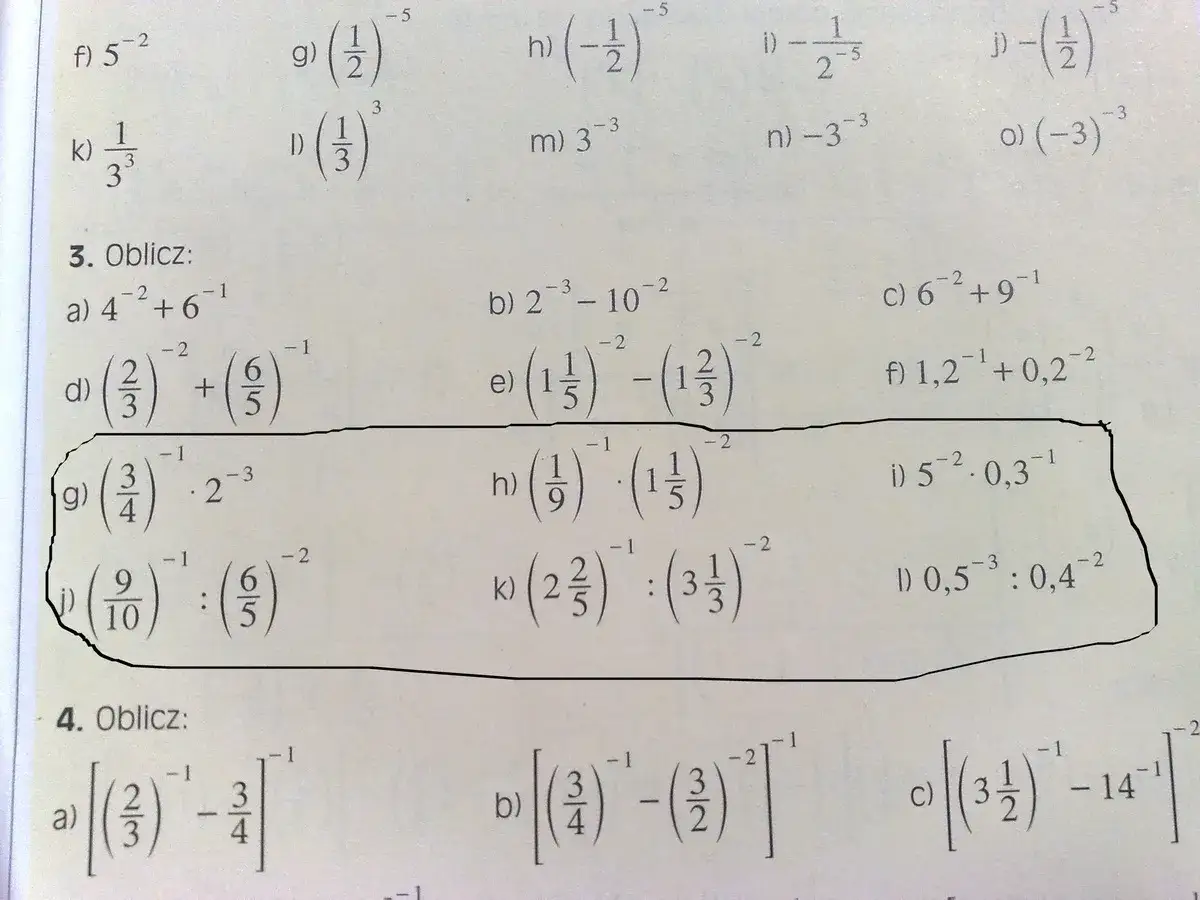 f) 5^{-2} g) (1/2)^{-5} h) (-1/2)^{-5} i) -1/2^{-5} j) -(1/2)^{-5}
k) 1/3^3 l) (1/3)^3 m) 3^{-3} n) -3^{-3} o) (-3)^{-3}
3. Oblicz:
a) 4^{-2} + 6^{-1} b) 2^{-3} - 10^{-2} c) 6^{-2} + 9^{-1}
d) (2/3)^{-2} + (6/5)^{-1} e) (1 1/5)^{-2} - (1 2/3)^{-2} f) 1,2^{-1} + 0,2^{-2}
g) (3/4)^{-1} · 2^{-3} h) (1/9)^{-1} · (1 1/5)^{-2} i) 5^{-2} · 0,3^{-1}
j) (9/10)^{-1} : (6/5)^{-2} k) (2 2/5)^{-1} : (3 1/3)^{-2} l) 0,5^{-3} : 0,4^{-2}
4. Oblicz:
a) [(2/3)^{-1} - 3/4]^{-1} b) [(3/4)^{-1} - (3/2)^{-2}]^{-1} c) [(3 1/2)^{-1} - 14^{-1}]^{-2}